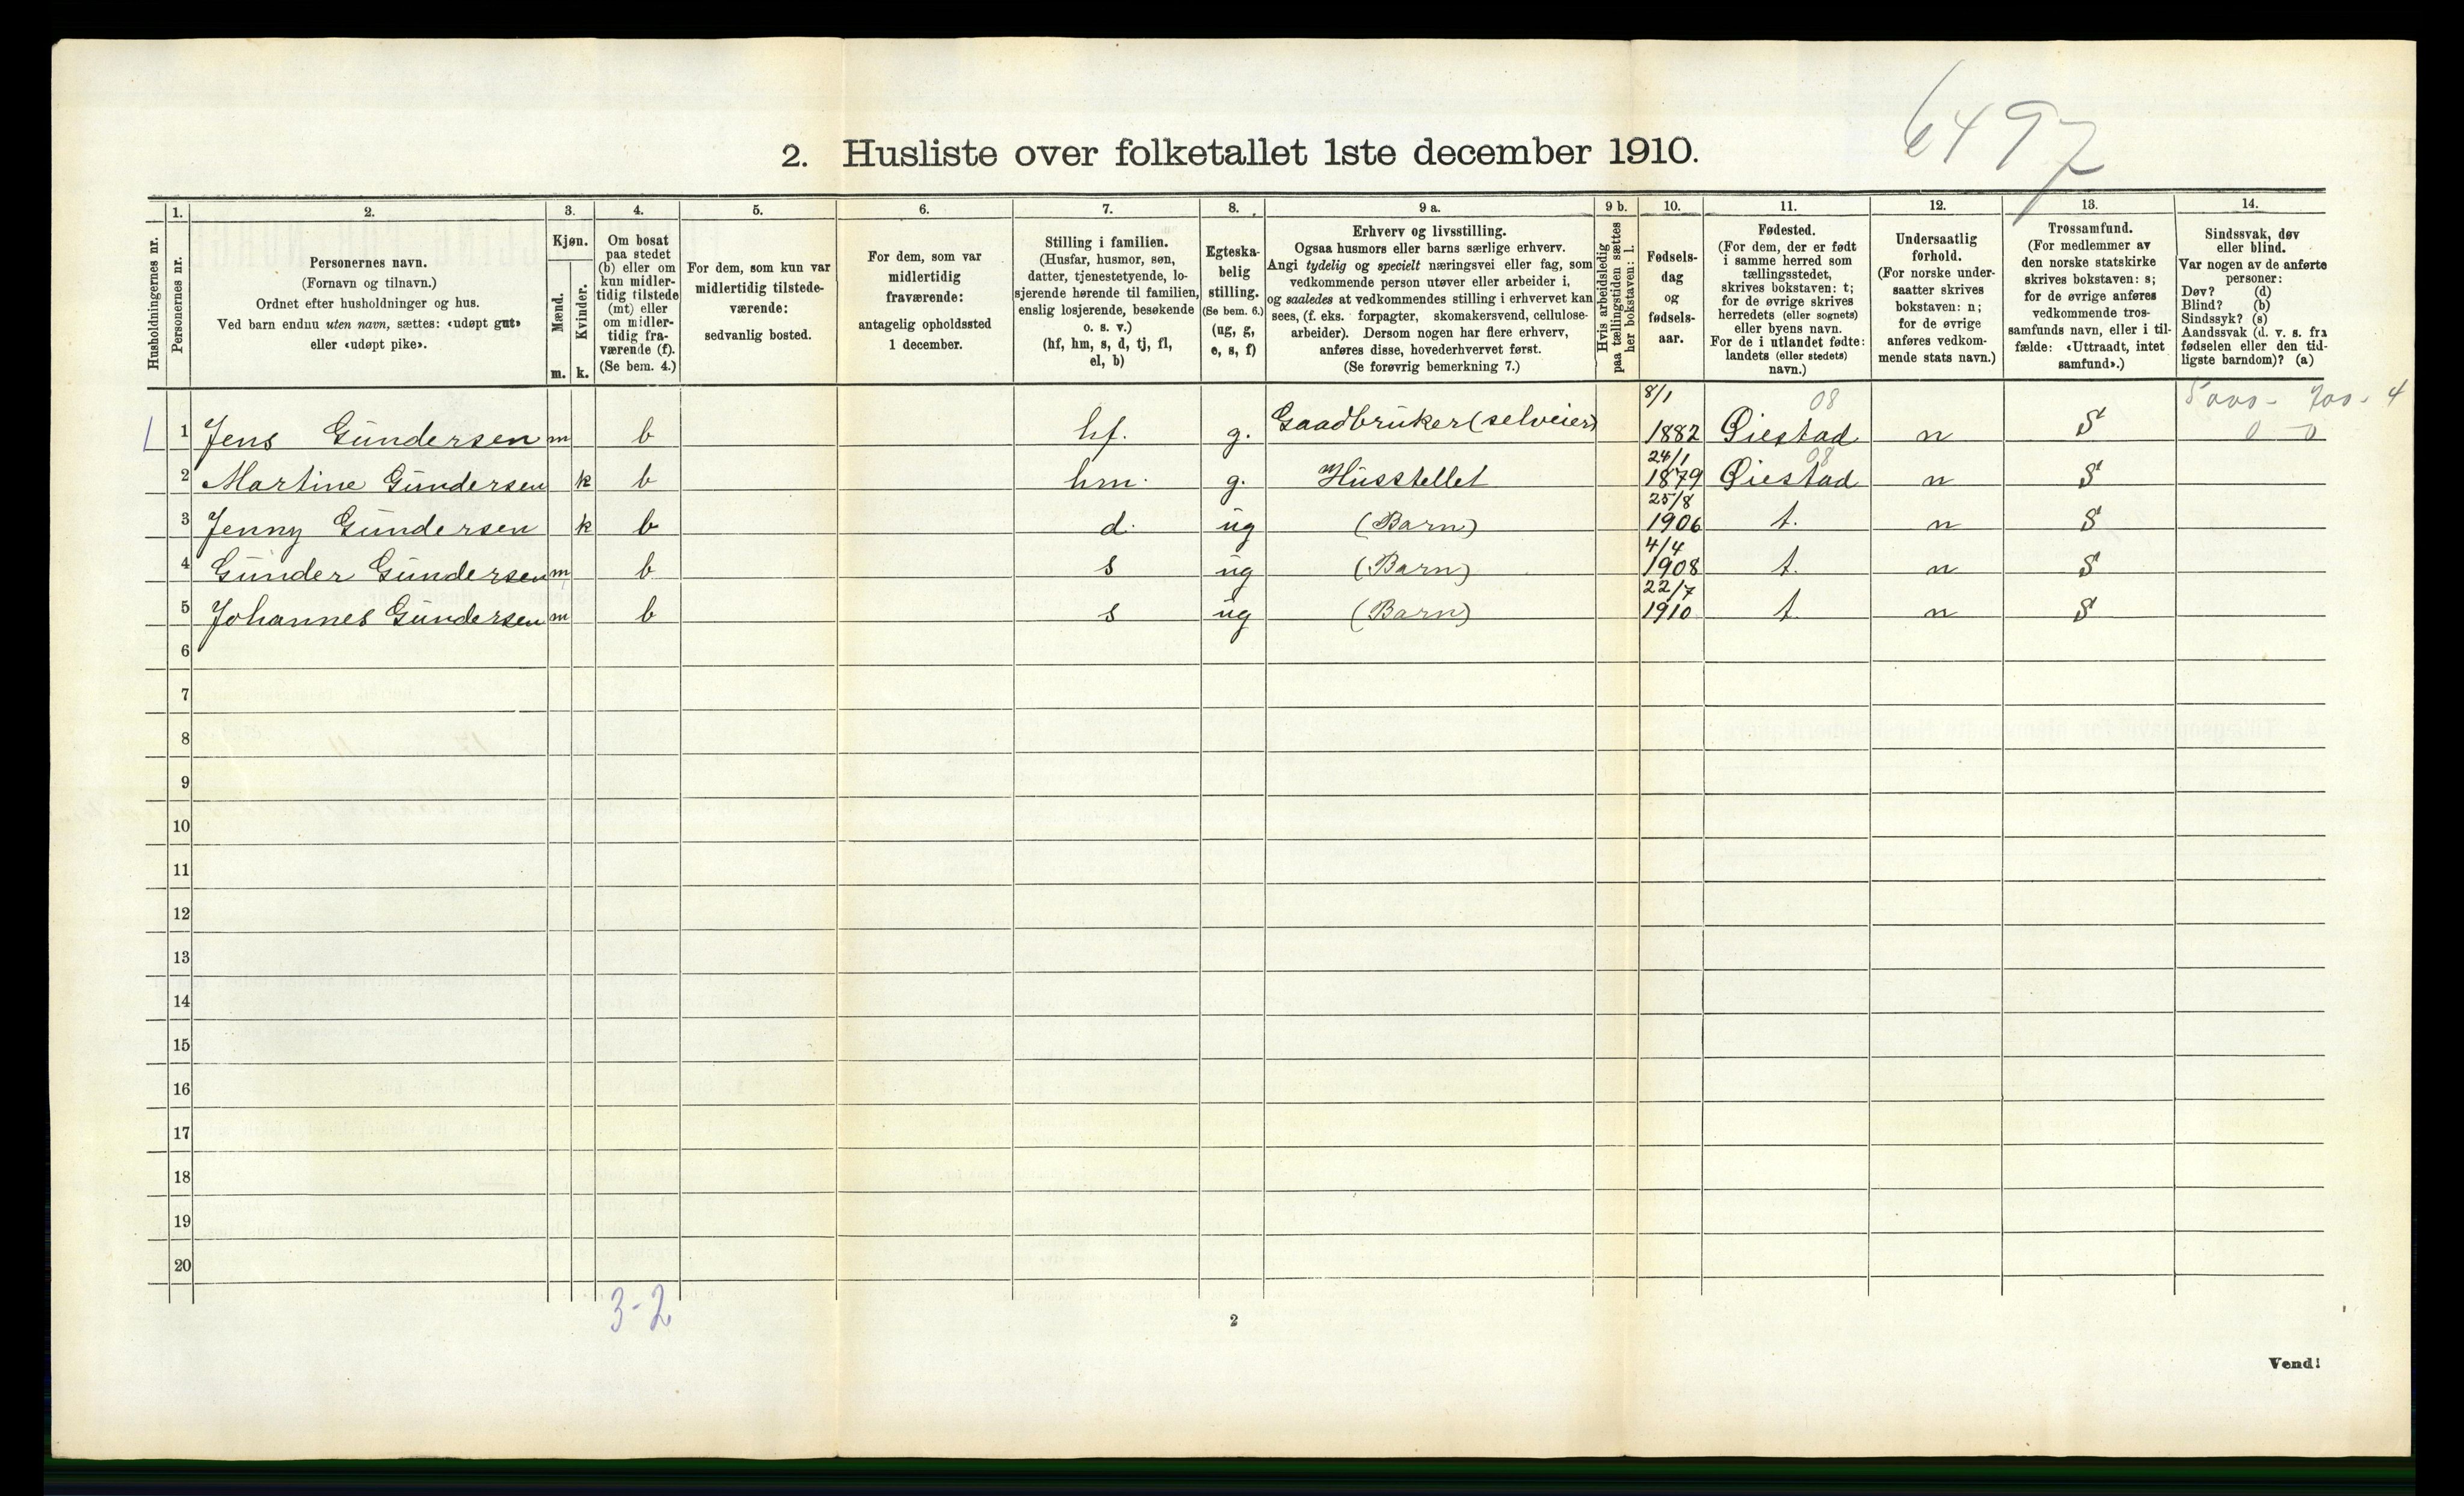 6497
2. Husliste over folketallet 1ste december 1910.
Husholdningernes nr.
1.
Personernes nr.
2.
Personernes navn.
(Fornavn og tilnavn.)
Ordnet efter husholdninger og hus.
Ved barn endnu uten navn, sættes: «udøpt gut»
eller «udøpt pike».
3.
Kjøn.
Mænd.
Kvinder.
m.
k.
4.
Om bosat
paa stedet
(b) eller om
kun midler-
tidig tilstede
(mt) eller
om midler-
tidig fra-
værende (f).
(Se bem. 4.)
5.
For dem, som kun var
midlertidig tilstede-
værende:
sedvanlig bosted.
6.
For dem, som var
midlertidig
fraværende:
antagelig opholdssted
1 december.
7.
Stilling i familien.
(Husfar, husmor, søn,
datter, tjenestetyende, lo-
sjerende hørende til familien,
enslig losjerende, besøkende
o. s. v.)
(hf, hm, s, d, tj, fl,
el, b)
8.
Egteska-
belig
stilling.
(Se bem. 6.)
(ug, g,
e, s, f)
9 a.
Erhverv og livsstilling.
Ogsaa husmors eller barns særlige erhverv.
Angi tydelig og specielt næringsvei eller fag, som
vedkommende person utøver eller arbeider i,
og saaledes at vedkommendes stilling i erhvervet kan
sees, (f. eks. forpagter, skomakersvend, cellulose-
arbeider). Dersom nogen har flere erhverv,
anføres disse, hovederhvervet først.
(Se forøvrig bemerkning 7.)
9 b.
Hvis arbeidsledig
paa tællingstiden sættes
her bokstaven: l.
10.
Fødsels-
dag
og
fødsels-
aar.
11.
Fødested.
(For dem, der er født
i samme herred som
tællingsstedet,
skrives bokstaven: t;
for de øvrige skrives
herredets (eller sognets)
eller byens navn.
For de i utlandet fødte:
landets (eller stedets)
navn.)
12.
Undersaatlig
forhold.
(For norske under-
saatter skrives
bokstaven: n;
for de øvrige
anføres vedkom-
mende stats navn.)
13.
Trossamfund.
(For medlemmer av
den norske statskirke
skrives bokstaven: s;
for de øvrige anføres
vedkommende tros-
samfunds navn, eller i til-
fælde: «Uttraadt, intet
samfund».)
14.
Sindssvak, døv
eller blind.
Var nogen av de anførte
personer:
Døv? (d)
Blind? (b)
Sindssyk? (s)
Aandssvak (d. v. s. fra
fødselen eller den tid-
ligste barndom)? (a)
8/1 08
1 Jens Gundersen m b hf. g. Gaadbruker (selveier) 1882 Øiestad n S 0 - 0
24/1 08
2 Martine Gundersen k b hm. g. Husstellet 1879 Øiestad n S
25/8
3 Jenny Gundersen k b d. ug (Barn) 1906 t. n S
4/4
4 Gunder Gundersen m b s ug (Barn) 1908 t. n S
22/7
5 Johannes Gundersen m b s ug (Barn) 1910 t. n S
6
7
8
9
10
11
12
13
14
15
16
17
18
19
20
3-2
2
Vend!